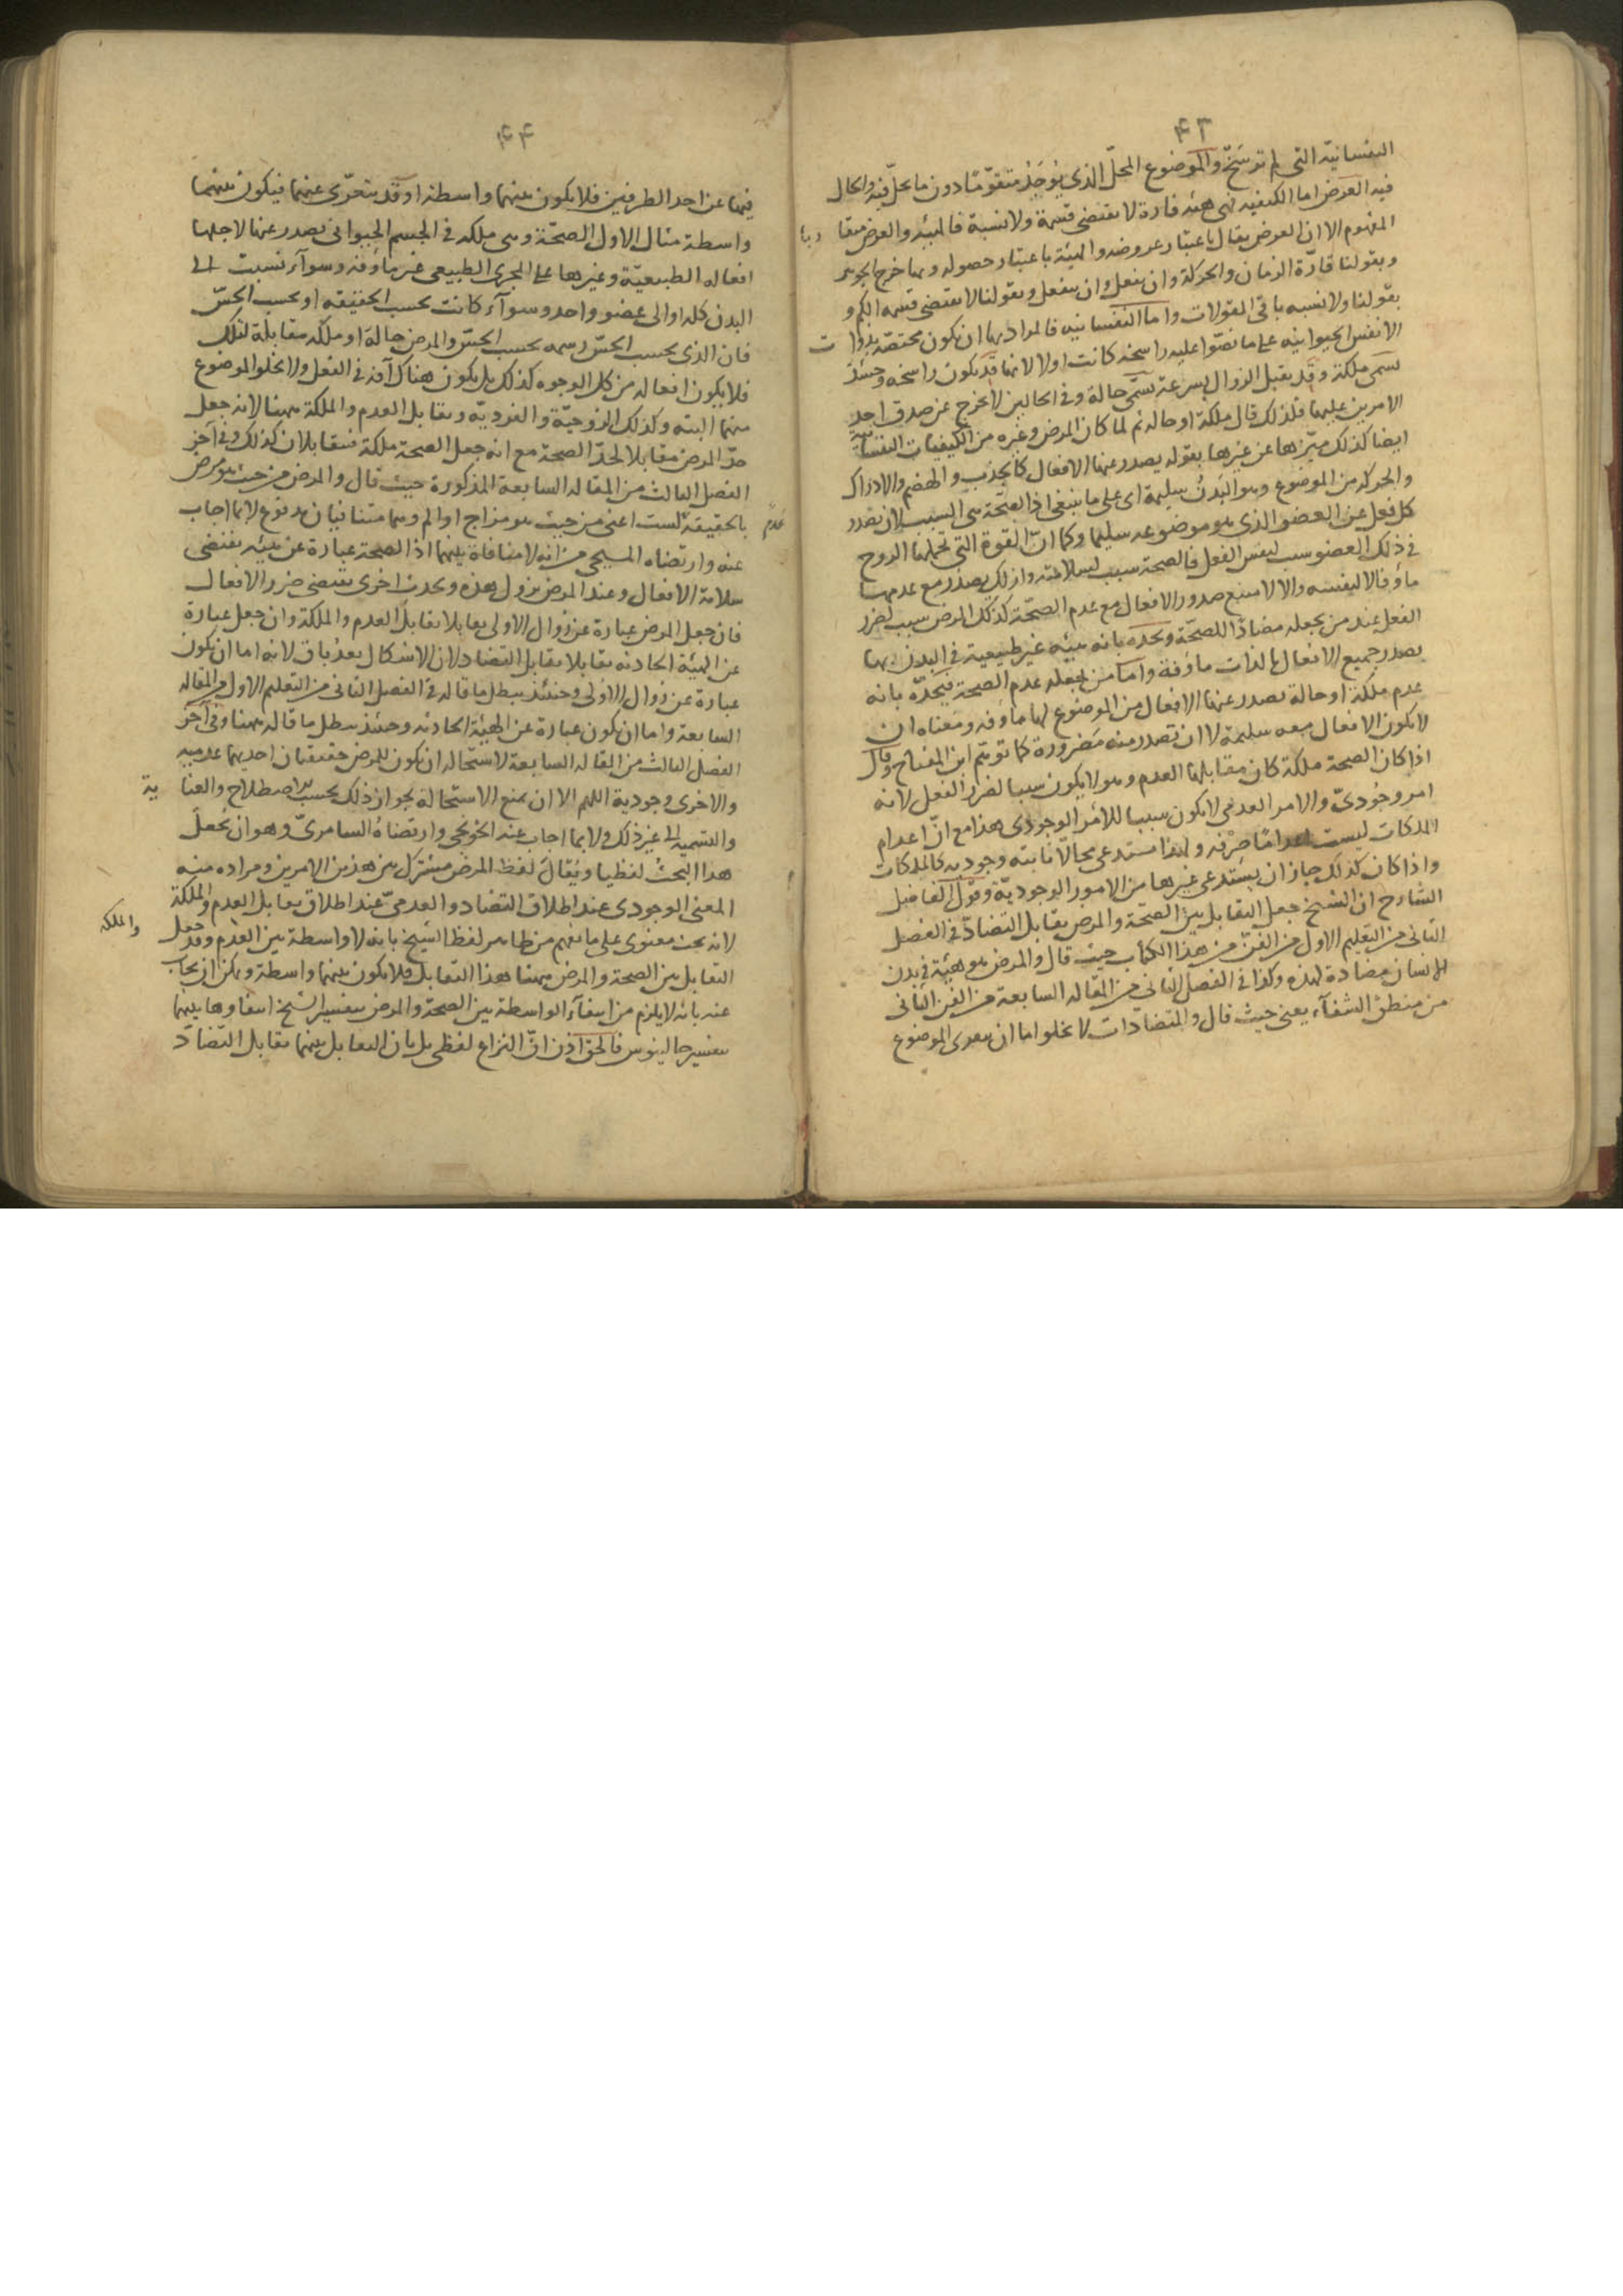 ٤٣
النفسانية التى لم ترسخ والموضوع المحل الذى يوجد متقوما دون ما حل فيه والحال
فيه العرض اما الكيفية فهى هيئه قارة لا تقتضى قسمة ولا نسبة فالهيئه والعرض متقا ربا
المفهوم الا ان العرض يقال باعتبار عروضه والهيئة باعتبار حصوله وبها خرج الجوهر
وبقولنا قارّة الزمان والحركة وان يفعل وان ينفعل وبقولنا لا تقتضى قسمه الكم و
بقولنا ولا نسبه باقى المقولات واما النفسانيه فالمراد بها ان تكون مختصّه بذوا ت
الانفس الحيوانيه على ما نصّوا عليه راسخه كانت اولا لانها قد تكون راسخه وحينئذ
تسمى ملكة وقد يقبل الزوال بسرعة تسمّى حالة وفى الحالين لا تخرج عن صدق احد
الامرين عليها فلذلك قال ملكة او حاله ثم لما كان المرض وغيره من الكيفيات النفسا نية
ايضا كذلك ميّزها عن غيرها بقوله يصدر عنها الافعال كالجذب والهضم والادراك
والحركه من الموضوع وهو البدن سليمة اى على ما ينبغى اذ الصحّة هى السبب لان تصدر
كل فعل عن العضو الذى هو موضوعه سليما وكما انّ القوة التى تحملها الروح
فى ذلك العضو سبب لنفس الفعل فالصحة سبب لسلامته واذ لك يصدر مع عدمها
ماؤفا لا لنفسه والا لامتنع صدور الافعال مع عدم الصحّة كذلك المرض سبب لضرر
الفعل عند من يجعله مضادّا للصحّة ويحدّه بانه هيئه غير طبيعية فى البدن بها
يصدر جميع الافعال بالذات ماؤفة واما من يجعله عدم الصحة فيحدّه بانه
عدم ملكة او حالة تصدر عنها الافعال من الموضوع لها ماؤفه ومعناه ان
لا تكون الافعال معه سليمة لا ان تصدر منه مضرورة كما توهّم ابن المفتاح وقال
اذا كان الصحة ملكة كان مقابلها العدم وهو لا يكون سببا لضرر الفعل لانه
امر وجودىّ والامر العدمى لا يكون سببا للامر الوجودى هذا مع انّ اعدام
الملكات ليست اعدامًا صرفه ولهذا تستدعى محالّا ثابته وجوديه كالملكات
واذا كان كذلك جاز ان يستدعى غيرها من الامور الوجوديّة وقول الفاضل
الشارح ان الشيخ جعل التقابل بين الصحّة والمرض تقابل التضادّ فى الفصل
الثانى من التعليم الاول من الفنّ من هذا الكتاب حيث قال والمرض هو هيئة فى بدن
الانسان مضادة لهذه وكذا فى الفصل الثانى من المقاله السابعة من الفن الثانى
من منطق الشفآء يعنى حيث قال والمتضادات لا تخلوا اما ان يعرى الموضوع
٤٤
فيها عن احد الطرفين فلا يكون بينهما واسطة او قد يتعرّى عنهما فيكون بينهما
واسطة مثال الاول الصحّة وهى ملكه فى الجسم الحيوانى تصدر عنها لاجلها
افعاله الطبيعيّة وغيرها على المجرى الطبيعى غير ماؤفة وسوآء نسبت الى
البدن كله او الى عضو واحد وسوآء كانت بحسب الحقيقه او بحسب الحسّ
فان الذى بحسب الحسّ رسمه بحسب الحسّ والمرض حالة او ملكه مقابلة لتلك
فلا يكون افعاله من كل الوجوه كذلك بل يكون هناك آفه فى الفعل ولا يخلوا الموضوع
منهما البتة وكذلك الزوجيّة والفرديّه وتقابل العدم والملكة ههنا لانه جعل
حدّ المرض مقابلا لحدّ الصحة مع انه جعل الصحة ملكة فيتقابلان كذلك وفى آخر
الفصل الثالث من المقاله السابعة المذكورة حيث قال والمرض من حيث هو مرض
بالحقيقة عَدمٌ لست اعنى من حيث هو مزاج او الم وهما متنافيان مدفوع لا بما اجاب
عنه وارتضاه المسيحى من انه لا منافاة بينهما اذ الصحة عبارة عن هيئه تقتضى
سلامة الافعال وعند المرض يزول هذه ويحدث اخرى تقتضى ضرر الافعال
فان جعل المرض عبارة عن زوال الاولى تقابلا تقابل العدم والملكة وان جعل عبارة
عن الهيئة الحادثه تقابلا تقابل التضاد لان الاشكال بعدُ باق لانه اما ان يكون
عبارة عن زوال الاوُلى وحينئذ يبطل ما قاله فى الفصل الثانى من التعليم الاول من المقاله
السابعة واما ان يكون عبارة عن الهيئة الحادثه وحينئذ يبطل ما قاله ههنا وفى آخر
الفصل الثالث من المقاله السابعة لاستحاله ان يكون للمرض حقيقتان احديهما عدميه
والاخرى وجودية اللهم الا ان يمنع الاستحالة بجواز ذلك بحسب الاصطلاح والعنا ية
والتسميه الى غير ذلك ولا بما اجاب عنه الخونجى وارتضاهُ السامرىّ وهو ان يجعل
هذا البحث لفظيا ويُقالَ لفظ المرض مشترك بين هذين الامرين ومراده منه
المعنى الوجودى عند اطلاق التضاد والعدمىّ عند اطلاق تقابل العدم والملكة
لانه بحث معنوى على ما يفهم من ظاهر لفظ الشيخ بانه لا واسطة بين العدم والملكه وقد جعل
التقابل بين الصحة والمرض ههنا هذا التقابل فلا يكون بينهما واسطة ويمكن ان يجاب
عنه بانّه لا يلزم من انتفآء الواسطة بين الصحّة والمرض بتفسير الشيخ انتفاوها بينهما
بتفسير جالينوس فالحق اذن انّ النزاع لفظى بل بان التقابل بينهما تقابل التّضادّ